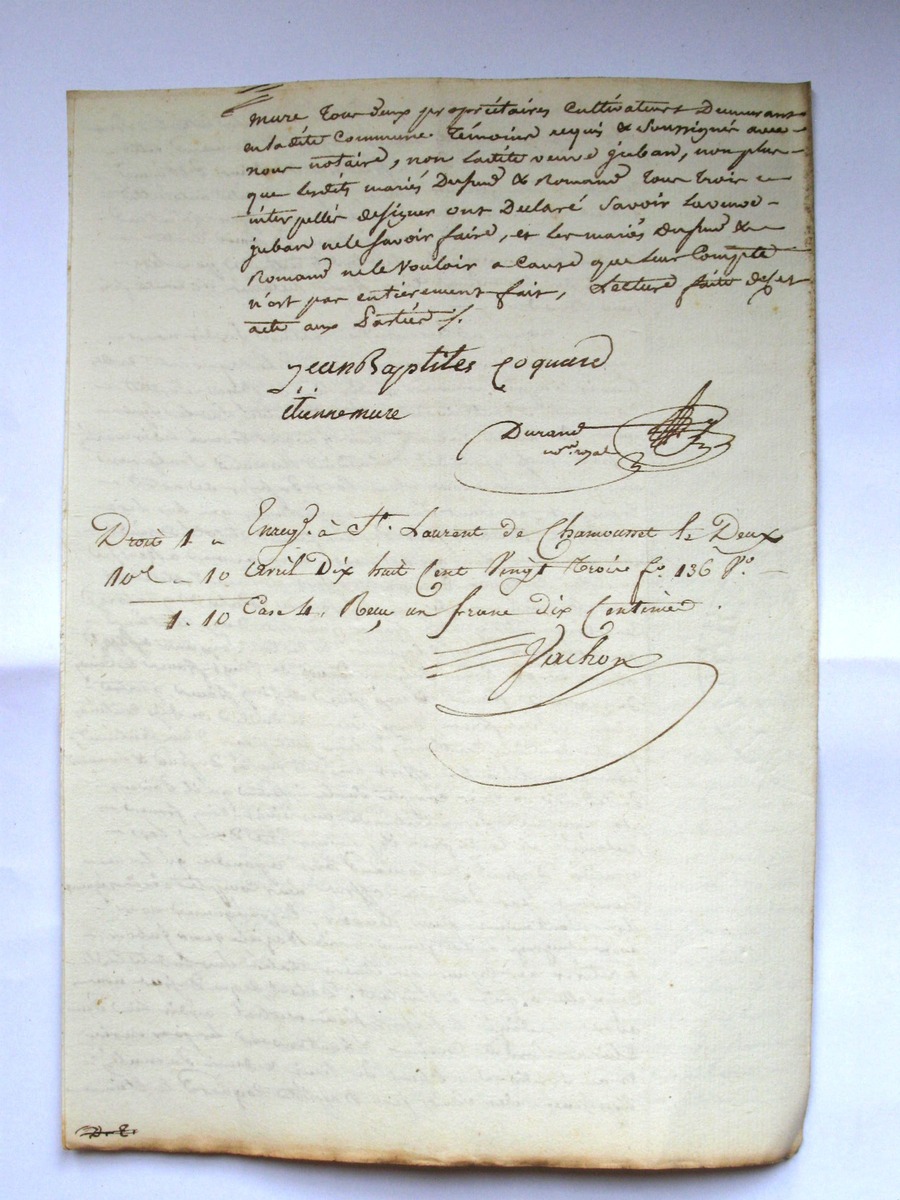 mure tous deux propriétaires cultivateurs Demeurant
en ladite Commune. témoins requis & soussignés avec
nous notaire, non ladite veuve juban, non plus
que lesdits mariés & Romand tous trois
interpellés de signer ont Déclaré Savoir la veuve
juban ne le Savoir faire, et les mariés &
Romand ne le Vouloir a Cause que leur Compte
n'est pas entièrement fait, Lecture faite de cet
acte aux Parties ./.
jean Baptites Coquard
étienne mure
Durand
nre. royal
Droit 1 " Enregé. à St. Laurent de Chamousset le Deux
10e " 10 avril Dix huit Cent Vingt trois fo. 136 Vo.
1. 10 Case 4. Reçu un franc dix Centimes.
Vachon
D. E.